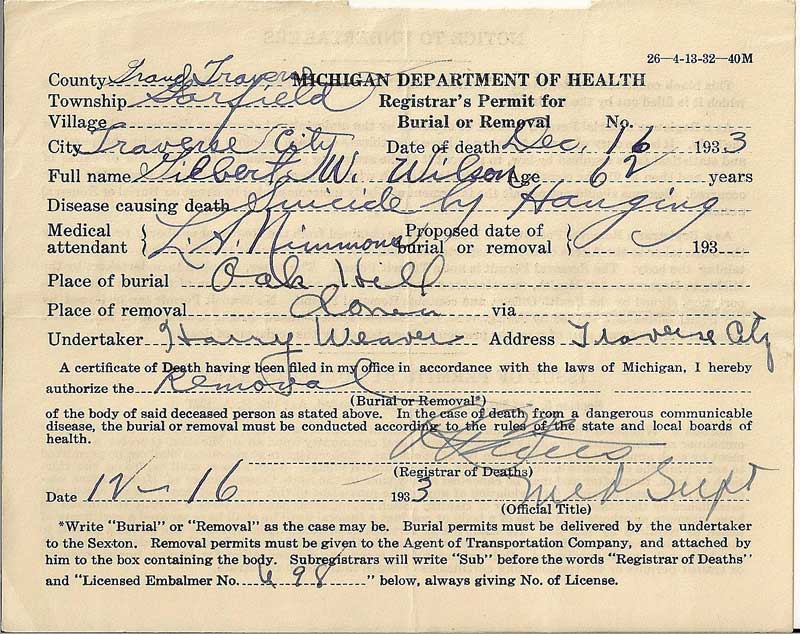 26—4-13-32—40M
County Grand Traverse MICHIGAN DEPARTMENT OF HEALTH
Township Garfield Registrar's Permit for
Village Burial or Removal No.
City Traverse City Date of death Dec. 16 1933
Full name Gilbert W. Wilson Age 62 years
Disease causing death Suicide by Hanging
Medical attendant } L. A. Nimmons Proposed date of burial or removal } 193
Place of burial Oak Hill
Place of removal via
Undertaker Harry Weaver Address Traverse City
A certificate of Death having been filed in my office in accordance with the laws of Michigan, I hereby
authorize the Removal
(Burial or Removal*)
of the body of said deceased person as stated above. In the case of death from a dangerous communicable
disease, the burial or removal must be conducted according to the rules of the state and local boards of
health.
(Registrar of Deaths)
Date 12-16 1933 Med Supt
(Official Title)
*Write "Burial" or "Removal" as the case may be. Burial permits must be delivered by the undertaker
to the Sexton. Removal permits must be given to the Agent of Transportation Company, and attached by
him to the box containing the body. Subregistrars will write "Sub" before the words "Registrar of Deaths"
and "Licensed Embalmer No. 698" below, always giving No. of License.